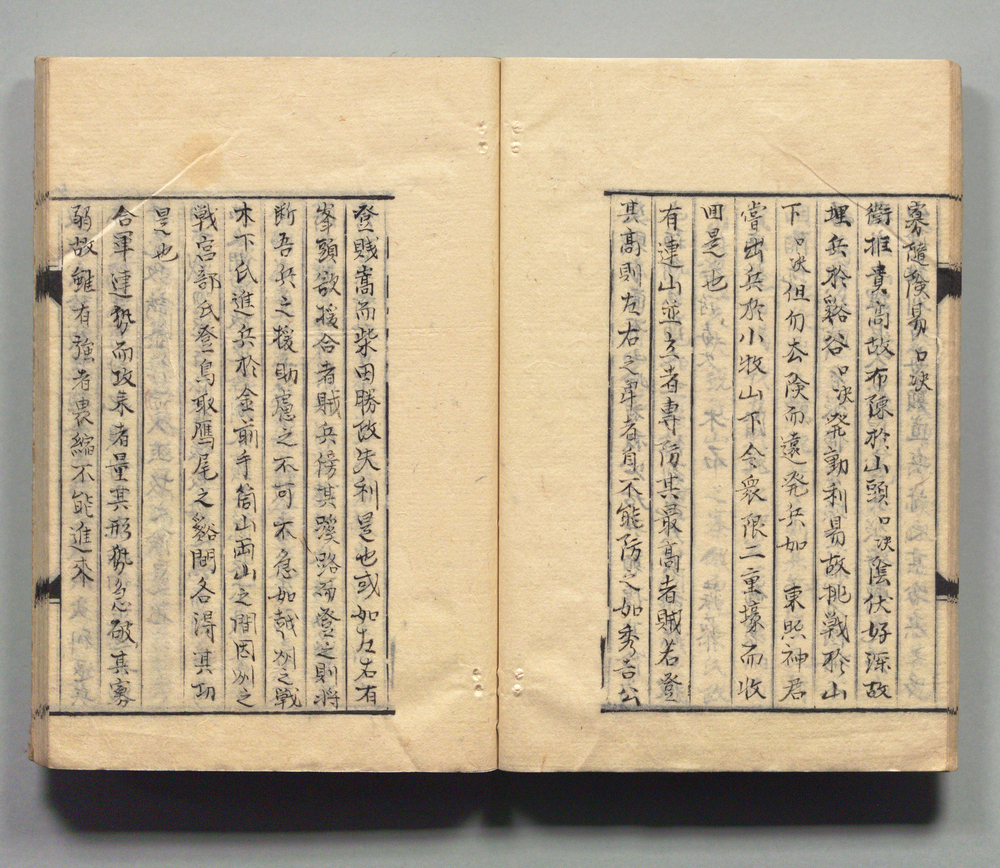 寡隨険易口决
衝推貴高故布陳於山頭口决陰伏好深故
埋兵於谿谷口决発動利易故挑戦於山
下口决但勿去険而遠発兵如　東照神君
嘗出兵於小牧山下令衆限二重壕而収
囬是也
有連山並立者専防其最高者賊若登
其高則左右之卑者自不能防之如秀吉公
登賤嵩而柴田勝政失利是也或如左右有
峯頭欲援合者賊兵傍其蹊路而登之則將
断吾兵之援助慮之不可不急如越州之戦
木下氏進兵於金前手筒山両山之間因州之
戦宮部氏登鳥取鴈尾之谿間各得其功
是也
合軍連勢而攻来者量其形勢急破其寡
弱故雖有強者畏縮不能進来